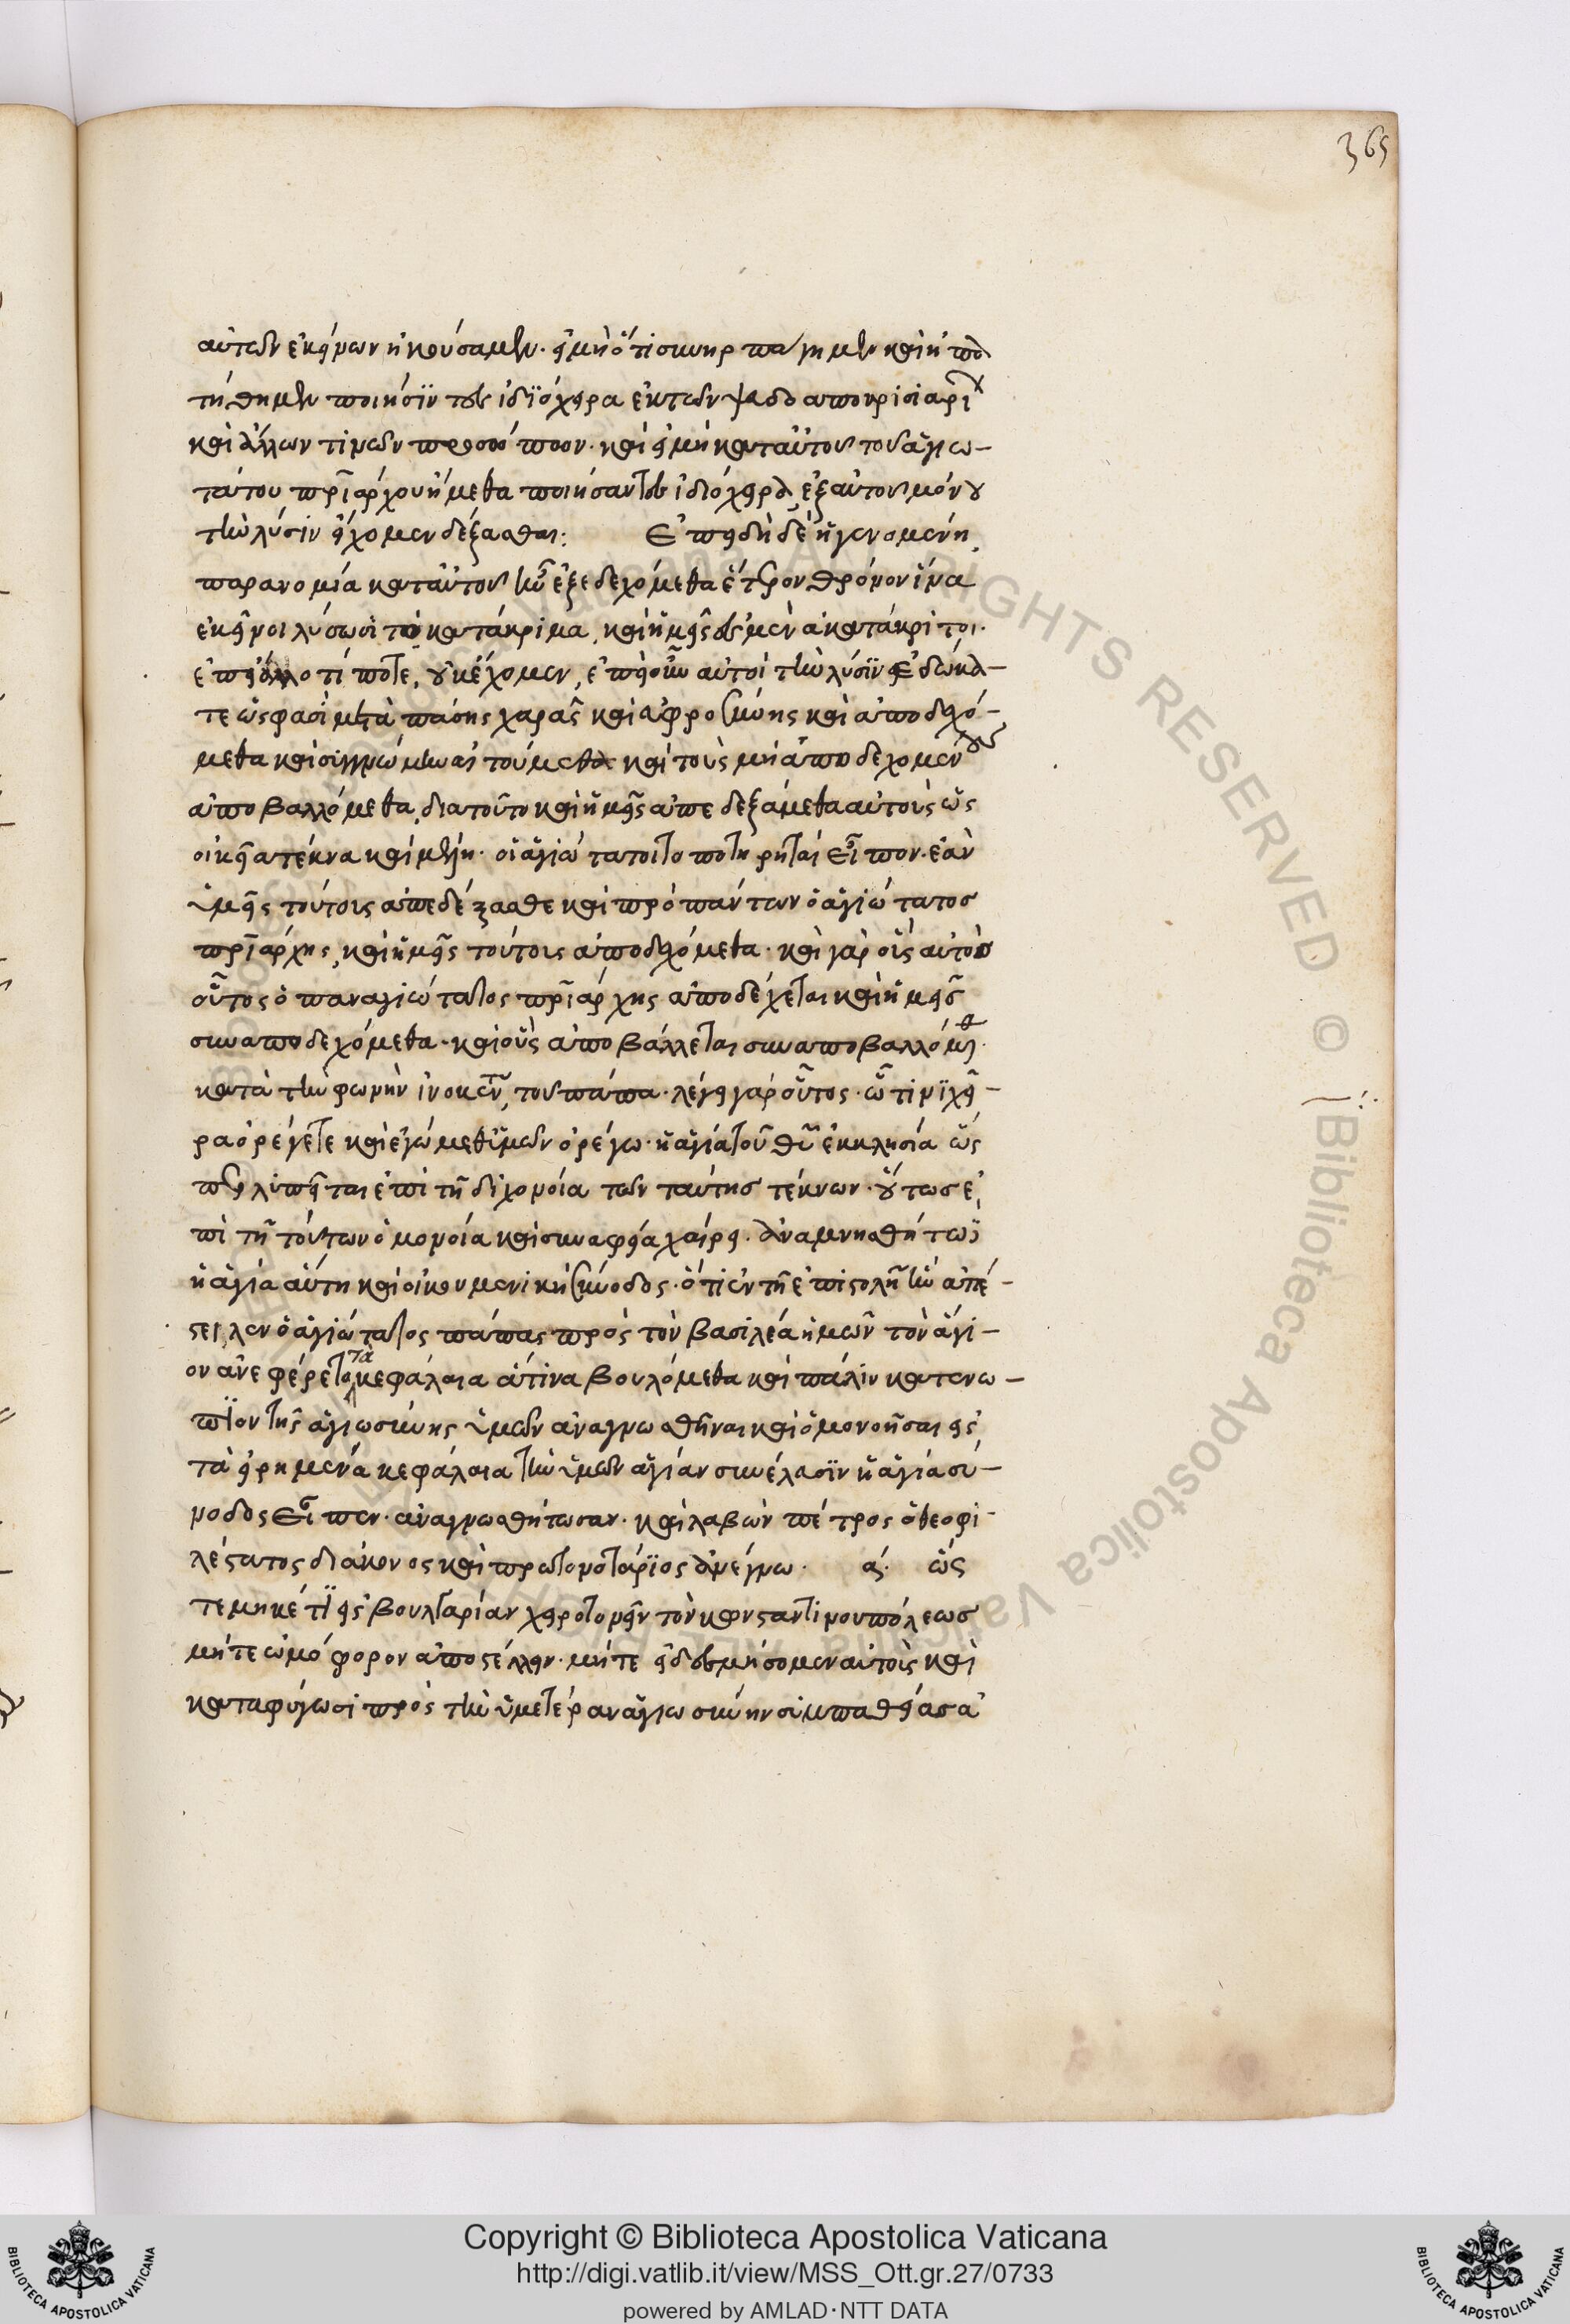 365
αὐτῶν ἐκείνων ἠκούσαμεν. εἰ μὴ ὅτι συνηρπάγημεν καὶ ἠπα
τήθημεν ποιήσϊν τὸ ἰδϊόχειρα ἐκ τῶν ψευδο αποκρισιαρί
καὶ ἄλλων τινῶν προσώπων. καὶ εἰ μὴ κατ αὐτοῦ τοῦ ἁγιω-
τάτου πριάρχου ἤμεθα ποιήσαντες ἰδιόχειρα, ἐξ αὐτοῦ μόνου
τὴν λύσιν εἴχομεν δέξασθαι: Ἐπειδὴ δὲ ἡ γενομένη
παρανομία κατ αὐτοῦ ἦν ἐξεδεχόμεθα ἕτερον θρόνον ἵνα
ἐκεῖνοι λύσωσι τὸ κατάκριμα, καὶ ἡμεῖς ὦμεν ἀκατάκριτοι.
ἐπεὶ ἄλλο τί ποτε, οὐκ ἔχομεν, ἐπεὶ οὖν αὐτοὶ τὴν λύσϊν ἐδώκα-
τε ὥς φασὶ μετὰ πάσης χαρᾶς καὶ εὐφροσύνης καὶ ἀποδεχό-
μεθα καὶ συγγνώμην αἰτούμεθα καὶ τοὺς μὴ ἀποδεχομένους
ἀποβαλλόμεθα, δια τοῦτο καὶ ἡμεῖς ἀπεδεξάμεθα αὐτοὺς ὡς
οἰκεῖα τέκνα καὶ μέλη. οἱ ἁγιώτατοι τοποτηρηταὶ εἶπον. ἐὰν
ὑμεῖς τούτοις ἀπεδέξασθε καὶ πρὸ πάντων ὁ ἁγιώτατος
πριάρχης, καὶ ἡμεῖς τούτοις ἀποδεχόμεθα. καὶ γὰρ οἷς αὐτὸς
οὗτος ὁ παναγιώτατος πριάρχης ἀποδέχεται καὶ ἡμεῖς
συναποδεχόμεθα. καὶ οὓς ἀποβάλλεται συναποβαλλόμεθ.
κατὰ τὴν φωνὴν ἰνοκεντ, τοῦ πάπα. λέγει γὰρ οὗτος. ᾧ τινϊ χεῖ-
ρα ὀρέγετε καὶ ἐγὼ μεθ ὑμῶν ὀρέγω. ἡ ἁγία τοῦ θυ ἐκκλησία ὥς
περ λυπεῖται ἐπὶ τῇ διχονοία τῶν ταύτης τέκνων. οὕτως ἐ
πὶ τῇ τούτων ὁμονοία καὶ συναφεία χαίρει. ἀναμνησθήτω
ἡ ἁγία αὕτη καὶ οἰκουμενικὴ σύνοδος. ὅτι ἐν τῇ ἐπιστολῇ ἣν ἀπέ-
στειλεν ὁ ἁγιώτατος πάπας πρὸς τὸν βασιλέα ἡμῶν τὸν ἅγι-
ον ἀνεφέρετο τὰ κεφάλαια ἅτινα βουλόμεθα καὶ πάλιν κατενώ-
πϊον τῆς ἁγιωσύνης ὑμῶν ἀναγνωσθῆναι καὶ ὁμονοῆσαι εἰς
τὰ εἰρημένα κεφάλαια τὴν ὑμῶν ἁγίαν συνέλασϊν ἡ ἁγία σύ-
νοδος εἶπεν. ἀναγνωσθήτωσαν. καὶ λαβὼν πέτρος ὁ θεοφι-
λέστατος διάκονος καὶ πρωτονοτάρϊος ἀνέγνω. α. ὥς
τε μηκέτϊ εἰς βουλγαρίαν χειροτονεῖν τὸν κωνσταντινουπόλεως
μήτε ὠμόφορον ἀποστέλλειν. μήτε εἰ δομήσομεν αὐτοῖς καὶ
καταφύγωσι πρὸς τὴν ὑμετέραν ἁγιωσύνην συμπαθείας ἀ
Copyright © Biblioteca Apostolica Vaticana
http://digi.vatlib.it/view/MSS_Ott.gr.27/0733
powered by AMLAD·NTT DATA